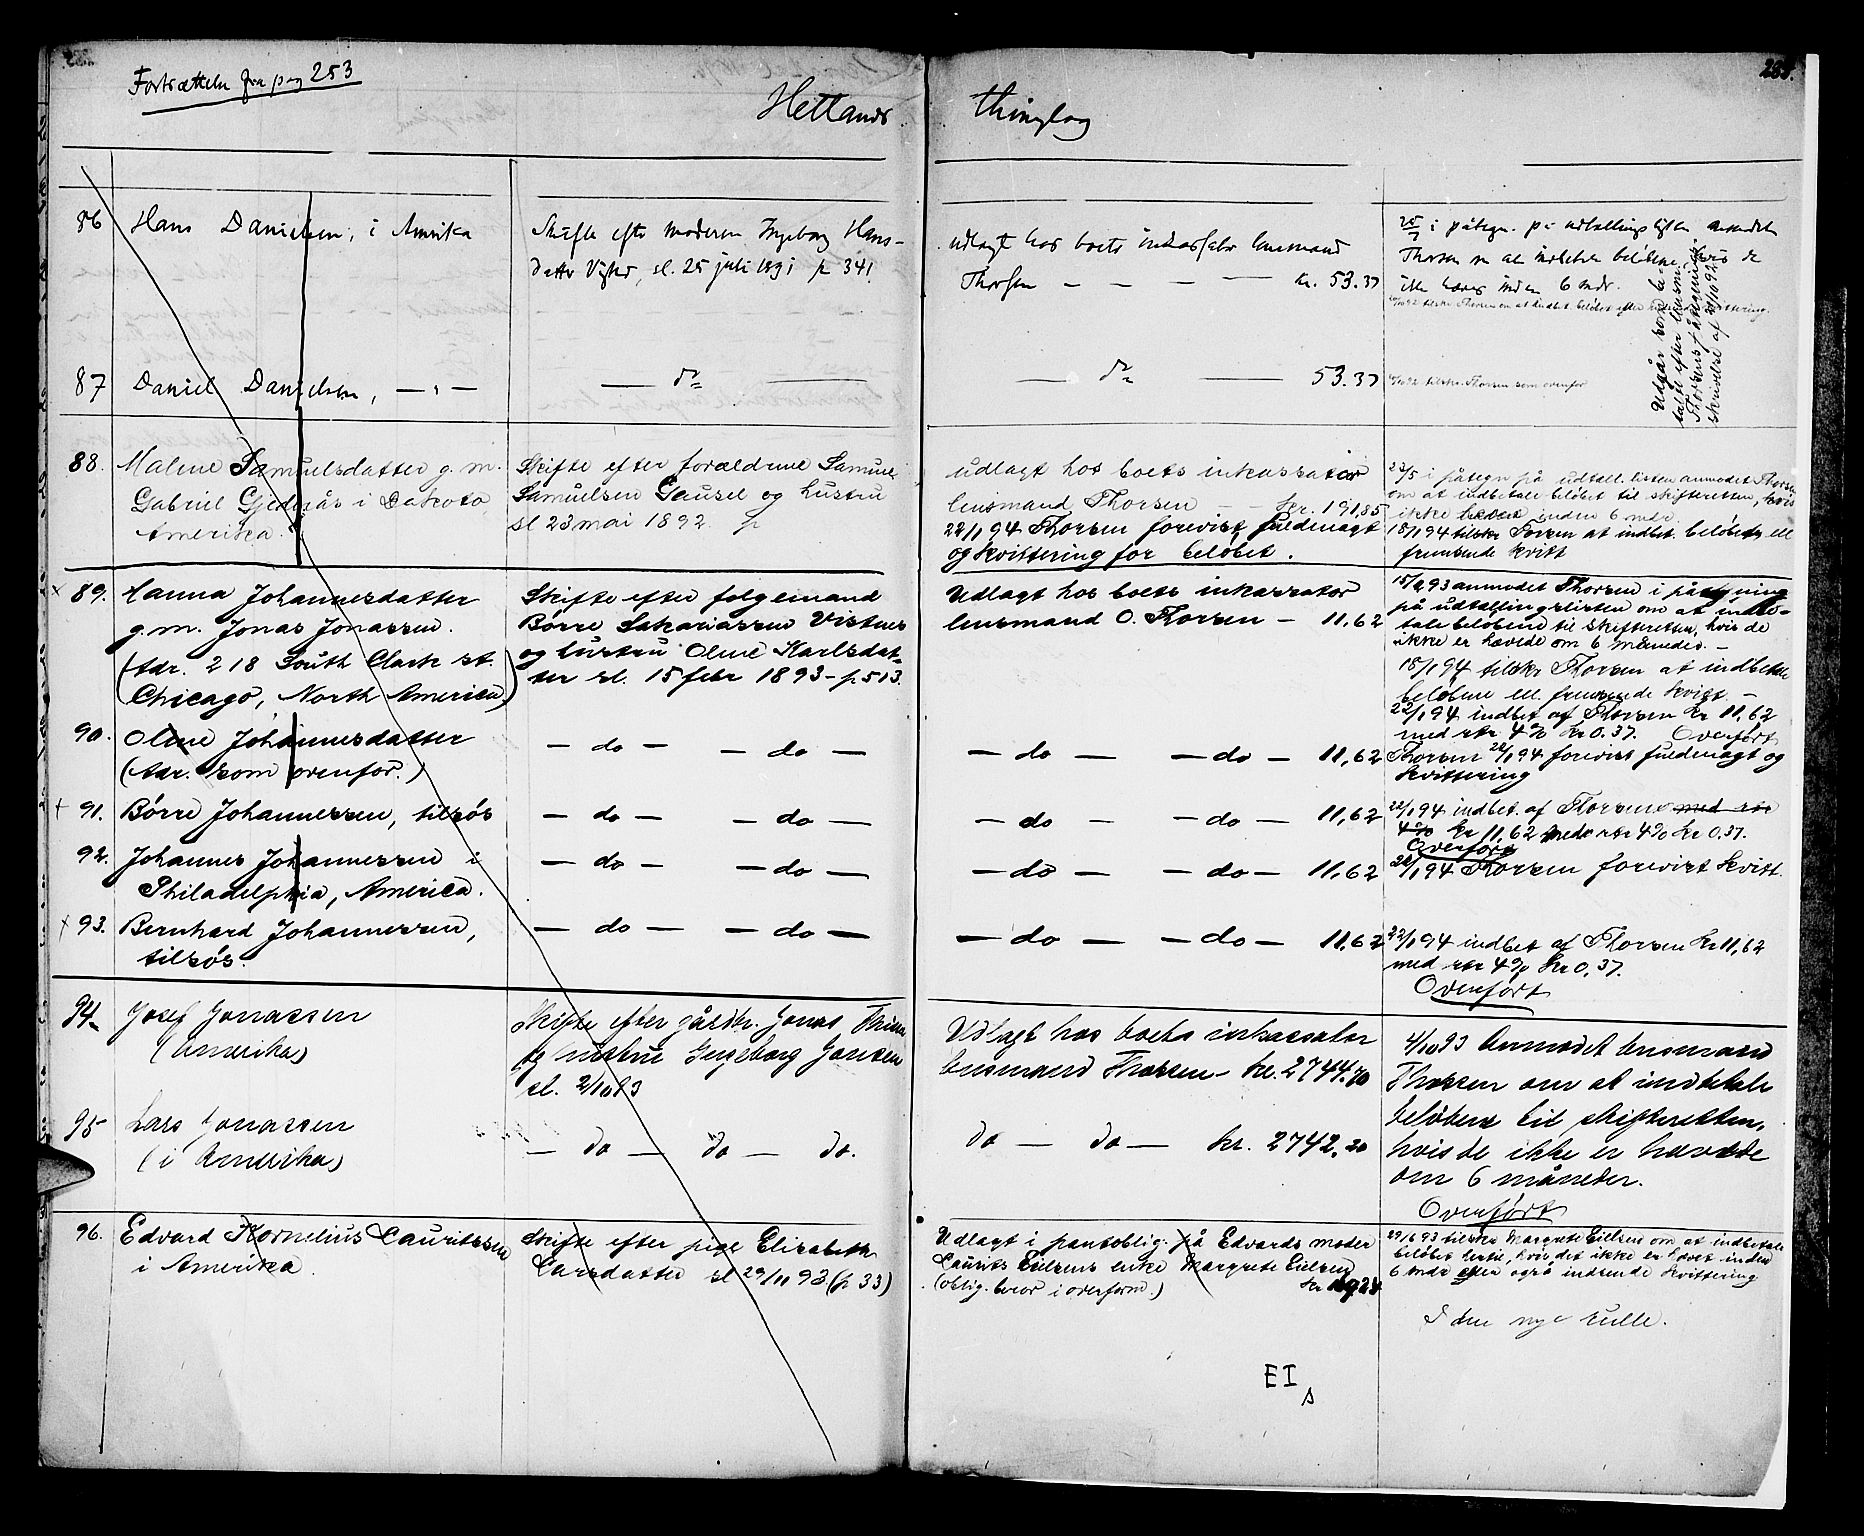 Fortsættelse fra pag 253
Hetlands thinglag
86 Hans Danielsen, i Amrika
Skifte efter moderen Ingeborg Hans-
datter Vigsø, sl. 25 juli 1891 p 341
udlagt hos boets inkassator lensmand
Thorsen — — — kr. 53.37
25/7 i påtegn. på udtællingslisten anmodet
Thorsen om at indbetale beløbene, hvis de
ikke hæves inden 6 mdr.
tilskr. Thorsen om at indbet. beløbet eller indsende kvittering.
87 Daniel Danielsen, —„—
— do —
— do — 53.37
tilskr. Thorsen som ovenfor
Udgår som be-
talte efter lensm.
Thorsens påtegning
skrivelse af 21/10 92
88. Malene Samuelsdatter g. m.
Gabriel Gjednås i Dakota
Amerika.
Skifte efter forældrene Samuel
Samuelsen Gausel og hustru
sl 23 mai 1892. p
udlagt hos boets inkassator
lensmand Thorsen — kr. 191,85
22/1 94 Thorsen forevist fuldmagt
og kvittering for beløbet.
23/5 i påtegn på udtæll. listen anmodet Thorsen
om at indbetale beløbet til skifteretten, hvis
ikke hævet inden 6 mdr.
18/1 94 tilskr Torsen at indbet. beløbet ell
fremsende kvitt
× 89. Hanna Johannesdatter
g. m. Jonas Jonassen.
(Adr. 218 South Clark st.
Chicago, North America)
Skifte efter følgemand
Børre Sakariassen Vistnes
og hustru Oline Karlsdat-
ter sl. 15 febr 1893 - p. 513.
Udlagt hos boets inkassator
lensmand O. Thorsen — 11,62
15/2 93 anmodet Thorsen i påtegning
på udtællingslisten om at indbe-
tale beløbene til skifteretten, hvis de
ikke er hævede om 6 måneder. —
18/1 94 tilskr Thorsen at indbetale
beløbene ell. fremsende kvitt. —
22/1 94 indbet af Thorsen kr 11,62
med rtr 4% kr 0.37. Overført
90. Oline Johannesdatter
(Adr. som ovenfor.)
— do — — do —
— do — — do — 11,62
Thorsen 22/1 94 forevist fuldmagt og
kvittering
+ 91. Børre Johannessen, tilsøs
— do — — do —
— do — — do — 11,62
22/1 94 indbet. af Thorsen med rtr
4% kr 11,62 med rtr 4% kr 0.37.
Overført
92. Johannes Johannessen i
Philadelphia, America.
— do — — do —
— do — — do — 11,62
22/1 94 Thorsen forevist kvitt.
× 93. Bernhard Johannessen,
tilsøs.
— do — — do —
— do — — do — 11,62
22/1 94 indbet af Thorsen kr 11,62
med rtr 4% kr 0,37.
Overført
94. Josef Jonassen
(Amerika)
Skifte efter gårdbr. Jonas
og hustru Ingeborg Jonsen
sl. 2/10 93
Udlagt hos boets inkassator
lensmand Thorsen — kr. 2744.70
4/10 93 Anmodet lensmand
Thorsen om at indbetale
beløbene til skifteretten,
hvis de ikke er hævede
om 6 måneder.
Overført
95 Lars Jonassen
(i Amerika)
— do — do — do.
do — do — kr. 2742.20
96. Edvard Kornelius Lauritssen
i Amerika.
Skifte efter pige Elisabeth
Larsdatter sl 29/11 92 (p 33)
Udlagt i pantoblig. på Edvards moder
Laurits Eielsens enke Margrete Eielsen
(oblig. beror i overform.) kr
29/6 93 tilskr Margrete Eielsen om at indbetale
beløbet hertil, hvis det ikke er hævet inden
6 mdr eller også indsende kvittering
I den nye rulle.
EI
s